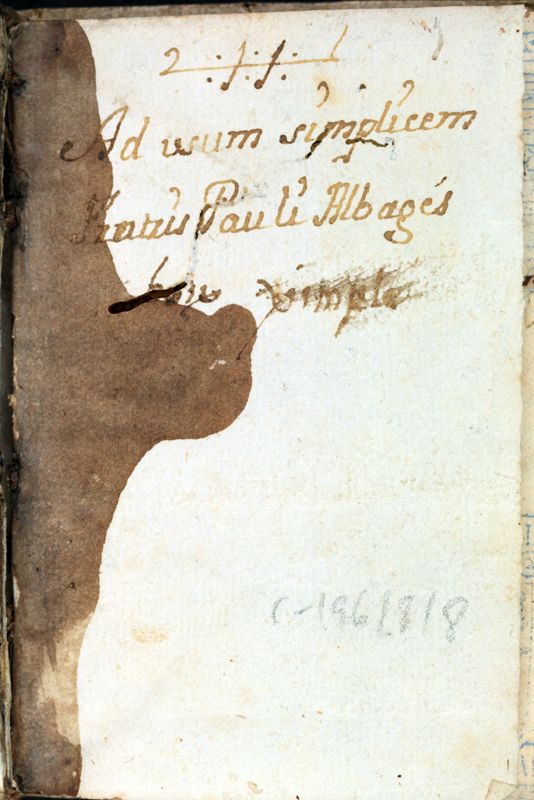 Ad usum simplicem
Fratris Pauli Albagés
simple
C-196/8/8